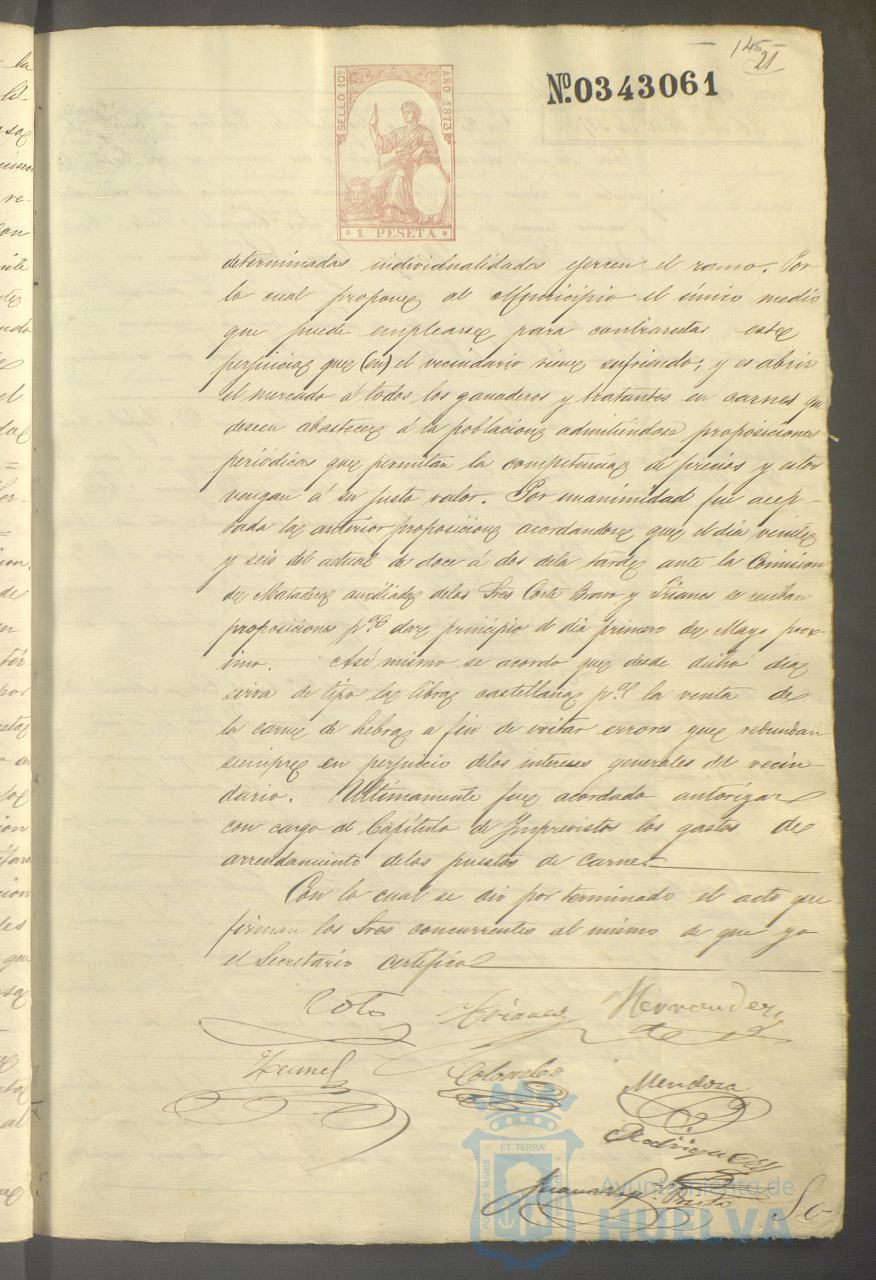 145
21
SELLO 10º
AÑO 1873
Nº 0343061
1 PESETA
determinadas individualidades ejercen el ramo. Por
lo cual propone al Municipio el único medio
que puede emplearse para contrarestar este
perjuicio que (en) el vecindario viene sufriendo, y es abrir
el mercado á todos los ganaderos y tratantes en carnes que
deseen abastecer á la poblacion admitiendose proposiciones
periódicas que permitan la competencia de precios y estos
vengan á su justo valor. Por unanimidad fue acep-
tada la anterior proposicion acordandose que el dia veinte
y seis del actual de doce á dos dela tarde ante la Comision
de Matadero auxiliada delos Sres Corte Bravo y Trianes se reciban
proposiciones pª dar principio el dia primero de Mayo prox-
imo. Así mismo se acordo que desde dicho dia
sirva de tipo la libra castellana pª la venta de
la carne de hebra a fin de evitar errores que redundan
siempre en perjuicio delos intereses generales del vecin-
dario. Ultimamente fue acordado autorizar
con cargo al Capítulo de Imprevistos los gastos de
arrendamiento delos puestos de carne.
Con lo cual se dio por terminado el acto que
firman los Sres concurrentes al mismo de que yo
el Secretario certifico
Coto Trianes Hernandez
Colombo
Mendoza
Rodriguez
ET TERRÆ
PORTUS MARIS
Ayuntamiento de
HUELVA